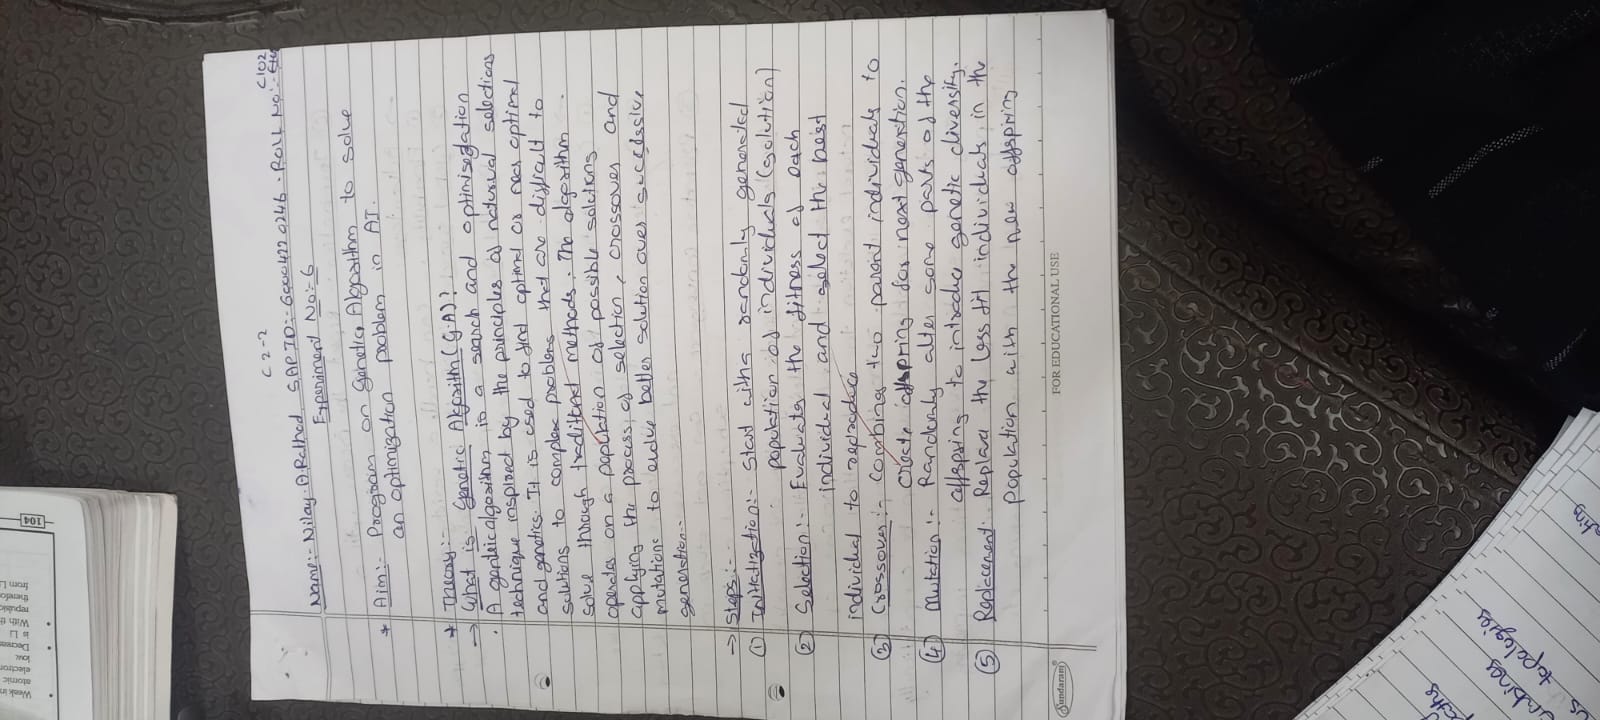 Weak in
atomic
electron
low.
Decreas
is Li
With th
repulsio
therefo
from L
104
C2-2
C102
Name:- Nilay.A.Rathod SAP ID:- 60004220246. ROLL No:-
Experiment No:- 6
* Aim:- Program on Genetic Algorithm to solve
an optimization problem in AI.
* Theory:-
→ What is Genetic Algorithm (G.A)?
. A gentric algorithm is a search and optimisedation
technique inspired by the principles of natural selections
and genetics. It is used to find optimal or near optimal
solutions to complex problems that are difficult to
solve through traditional methods. The algorithm
operates on a population of possible solutions
applying the process of selection, crossover and
mutations to evolve better solution over successive
generation..
→ Steps:-
① Initialization:- Start with a randomly generated
population of individuals (solution)
② Selection:- Evaluates the fitness of each
individual and select the best
individual to reproduce
③ Crossover:- Combines two parent individuals to
create offspring for next generation.
④ Mutation:- Randomly alter some parts of the
offspring to introduce genetic diversity.
⑤ Replacement: Replace the less fit individuals in the
Population with the new offspiring
Sundaram
FOR EDUCATIONAL USE
paths
ombines
us topologies
ating